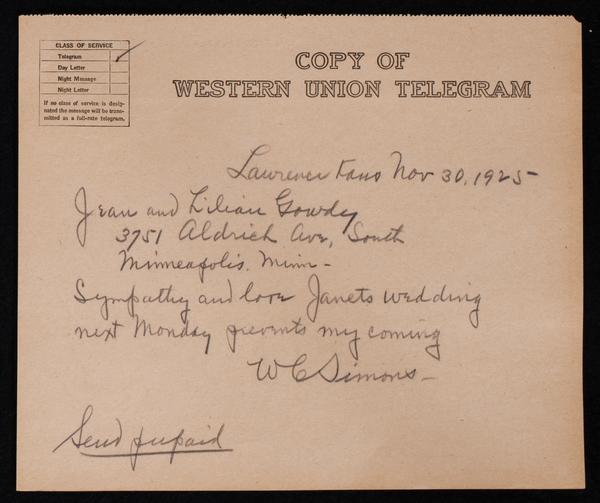 CLASS OF SERVICE
Telegram
Day Letter
Night Message
Night Letter
If no class of service is desig-
nated the message will be trans-
mitted as a full-rate telegram.
COPY OF
WESTERN UNION TELEGRAM
Lawrence Kans Nov 30, 1925-
Jean and Lilian Gowdy
3751 Aldrich Ave, South
Minneapolis, Minn-
Sympathy and love Janets wedding
next Monday prevents my coming
W C Simons-
Send prepaid